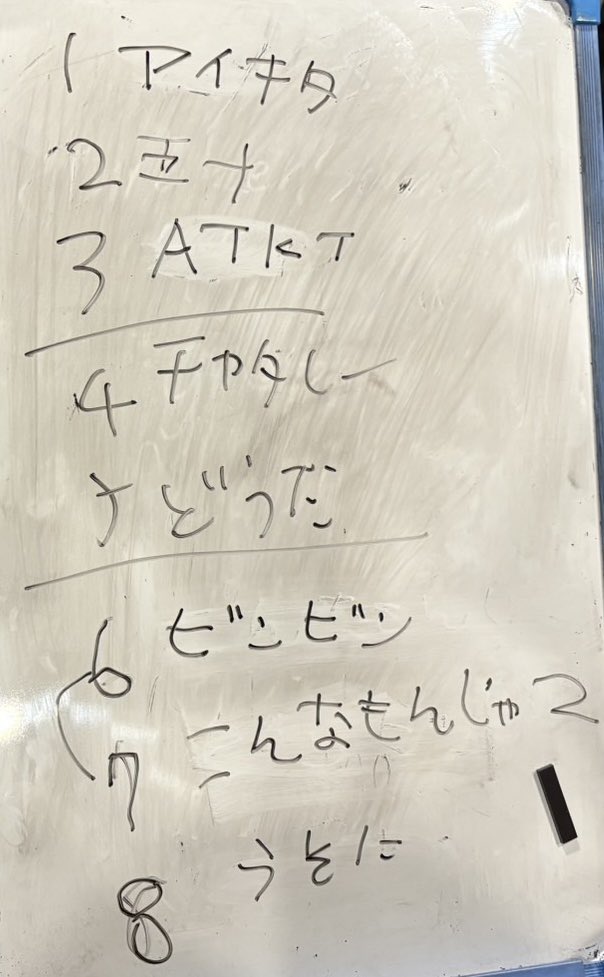 1 アイキタ
2 五十
3 ATKT
4 チャタレー
5 どうだ
6 ビンビン
7 こんなもんじゃ2
8 うそに